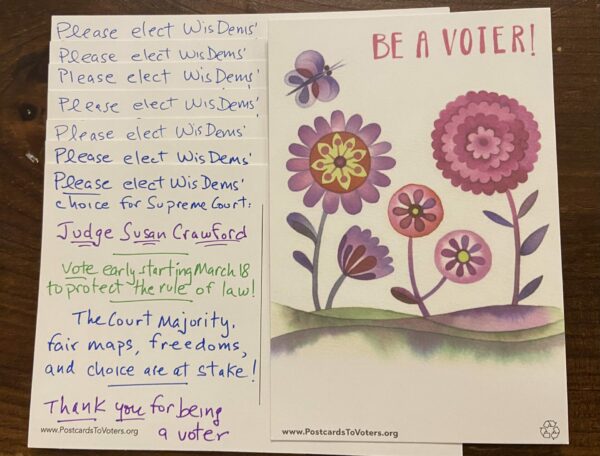 Please elect WisDems'
Please elect WisDems'
Please elect WisDems'
Please elect WisDems'
Please elect WisDems'
Please elect WisDems'
Please elect WisDems'
choice for Supreme Court:
Judge Susan Crawford
Vote early starting March 18
to protect the rule of law!
The Court Majority,
fair maps, freedoms,
and choice are at stake!
Thank you for being
a voter
www.PostcardsToVoters.org
BE A VOTER!
www.PostcardsToVoters.org